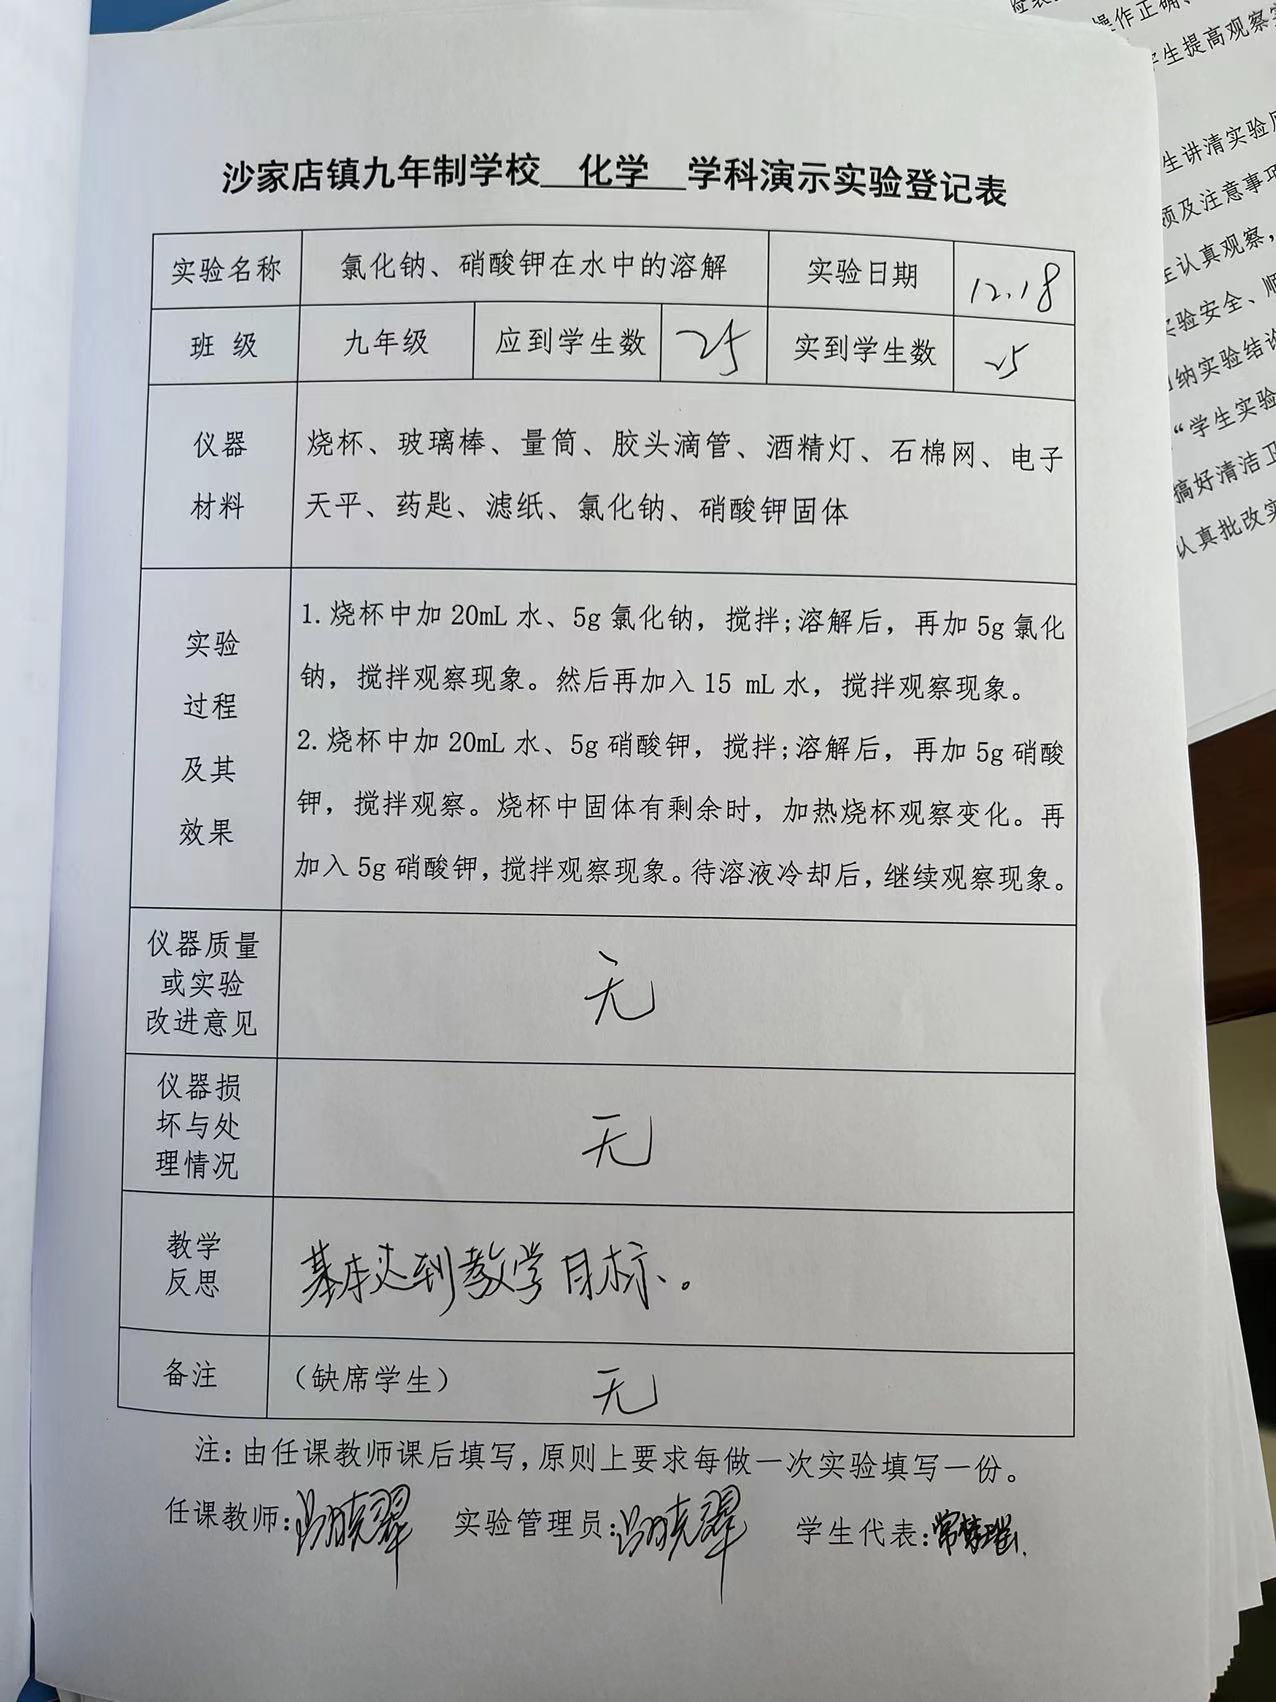 沙家店镇九年制学校 化学 学科演示实验登记表
实验名称 氯化钠、硝酸钾在水中的溶解 实验日期 12.18
班 级 九年级 应到学生数 25 实到学生数 25
仪器
材料
烧杯、玻璃棒、量筒、胶头滴管、酒精灯、石棉网、电子
天平、药匙、滤纸、氯化钠、硝酸钾固体
实验
过程
及其
效果
1.烧杯中加 20mL 水、5g 氯化钠，搅拌;溶解后，再加 5g 氯化
钠，搅拌观察现象。然后再加入 15 mL 水，搅拌观察现象。
2.烧杯中加 20mL 水、5g 硝酸钾，搅拌;溶解后，再加 5g 硝酸
钾，搅拌观察。烧杯中固体有剩余时，加热烧杯观察变化。再
加入 5g 硝酸钾，搅拌观察现象。待溶液冷却后，继续观察现象。
仪器质量
或实验
改进意见
无
仪器损
坏与处
理情况
无
教学
反思
基本达到教学目标。
备注 （缺席学生） 无
注：由任课教师课后填写，原则上要求每做一次实验填写一份。
任课教师: 实验管理员: 学生代表:
操作正确、
学生提高观察
生讲清实验
项及注意事项
认真观察，
实验安全、
纳实验结
“学生实验
搞好清洁卫
认真批改实